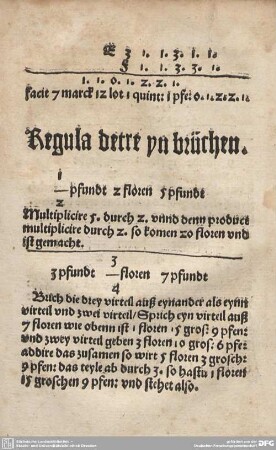 ʒ 1. 1. 3. 1. 1.
1. 1. 3. 3. 1.
1. 1. 0. 1. 2. 2. 1.
facit 7 marck 12 lot 1 quint: 1 pfe: 0. 1. 2. 2. 1.
Regula detre yn brüchen.
1
—pfundt 2 floren 5 pfundt
2
Multiplicire 5. durch 2. vnnd deny product
multiplicire durch 2. so komen 20 floren vnd
ist gemacht.
3
3 pfundt —floren 7 pfundt
4
Brich die drey virteil auß eynander als eynn
virteil vnd zwei virteil/ Sprich eyn virteil auß
7 floren wie oben ist 1 floren 15 groß: 9 pfen:
vnd zwey virteil geben 3 floren 10 gros: 6 pfe:
addire das zusamen so wirt 5 floren 3 groschē:
9 pfen: das teyle ab durch 3. so hastu 1 floren
15 groschen 9 pfen: vnd stehet also.